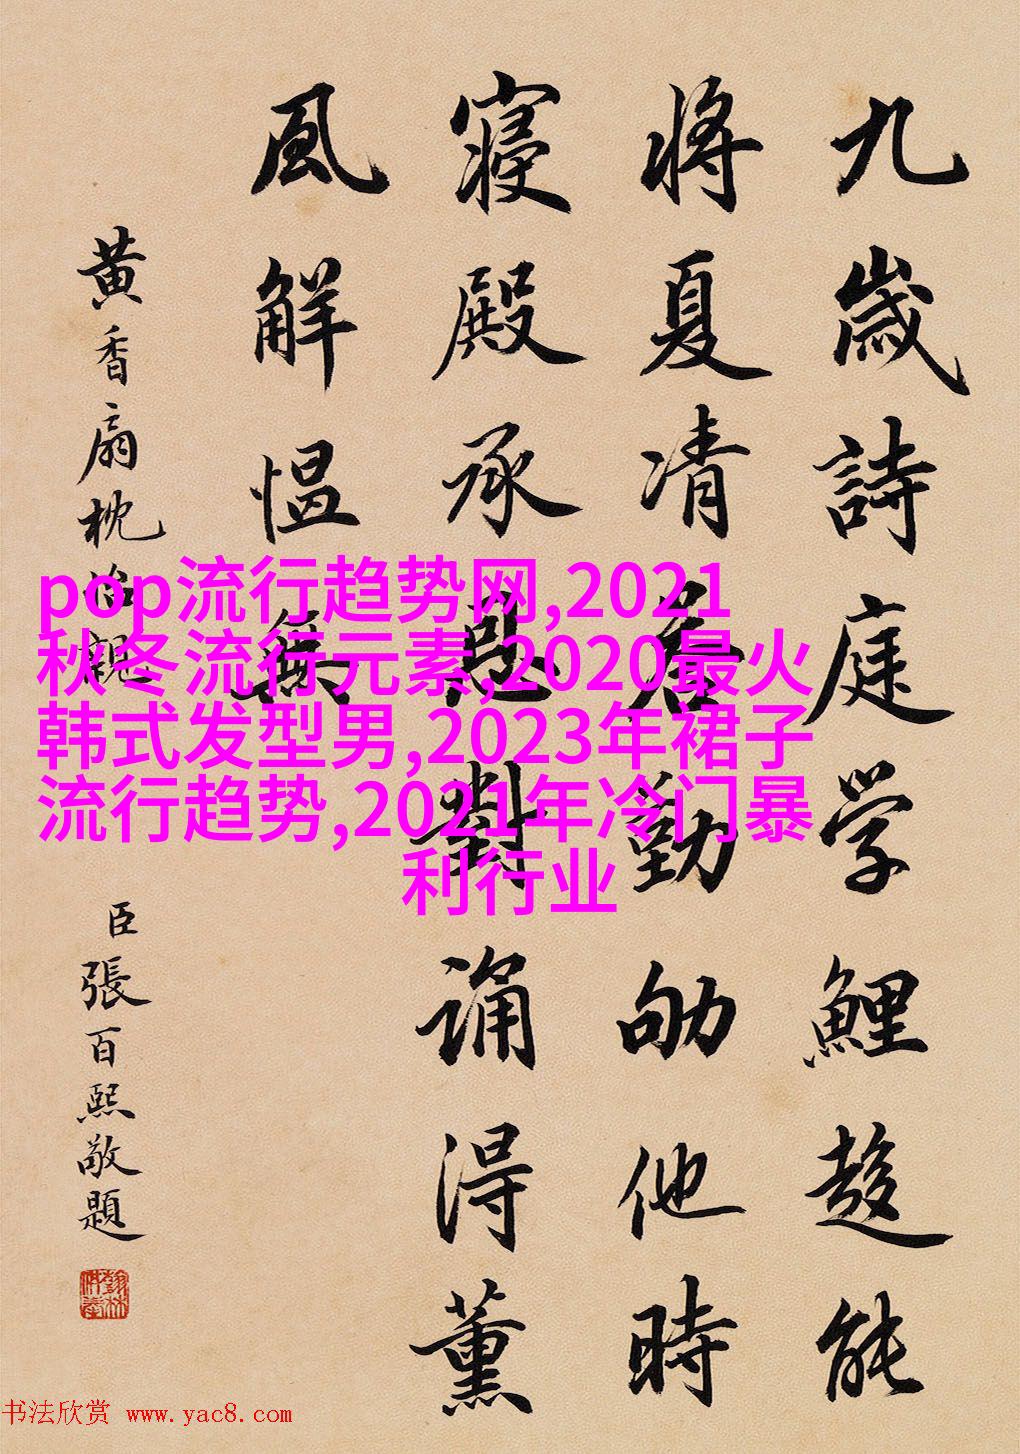 九歲詩庭学鯉趍能
将夏凊若勤劬他時
寢殿承恩對誦得薫
風解愠無
黄香扇枕怡親
臣張百熙敬題
pop流行趋势网,2021
秋冬流行元素,2020最火
韩式发型男,2023年裙子
流行趋势,2021年冷门暴
利行业
书法欣赏 www.yac8.com